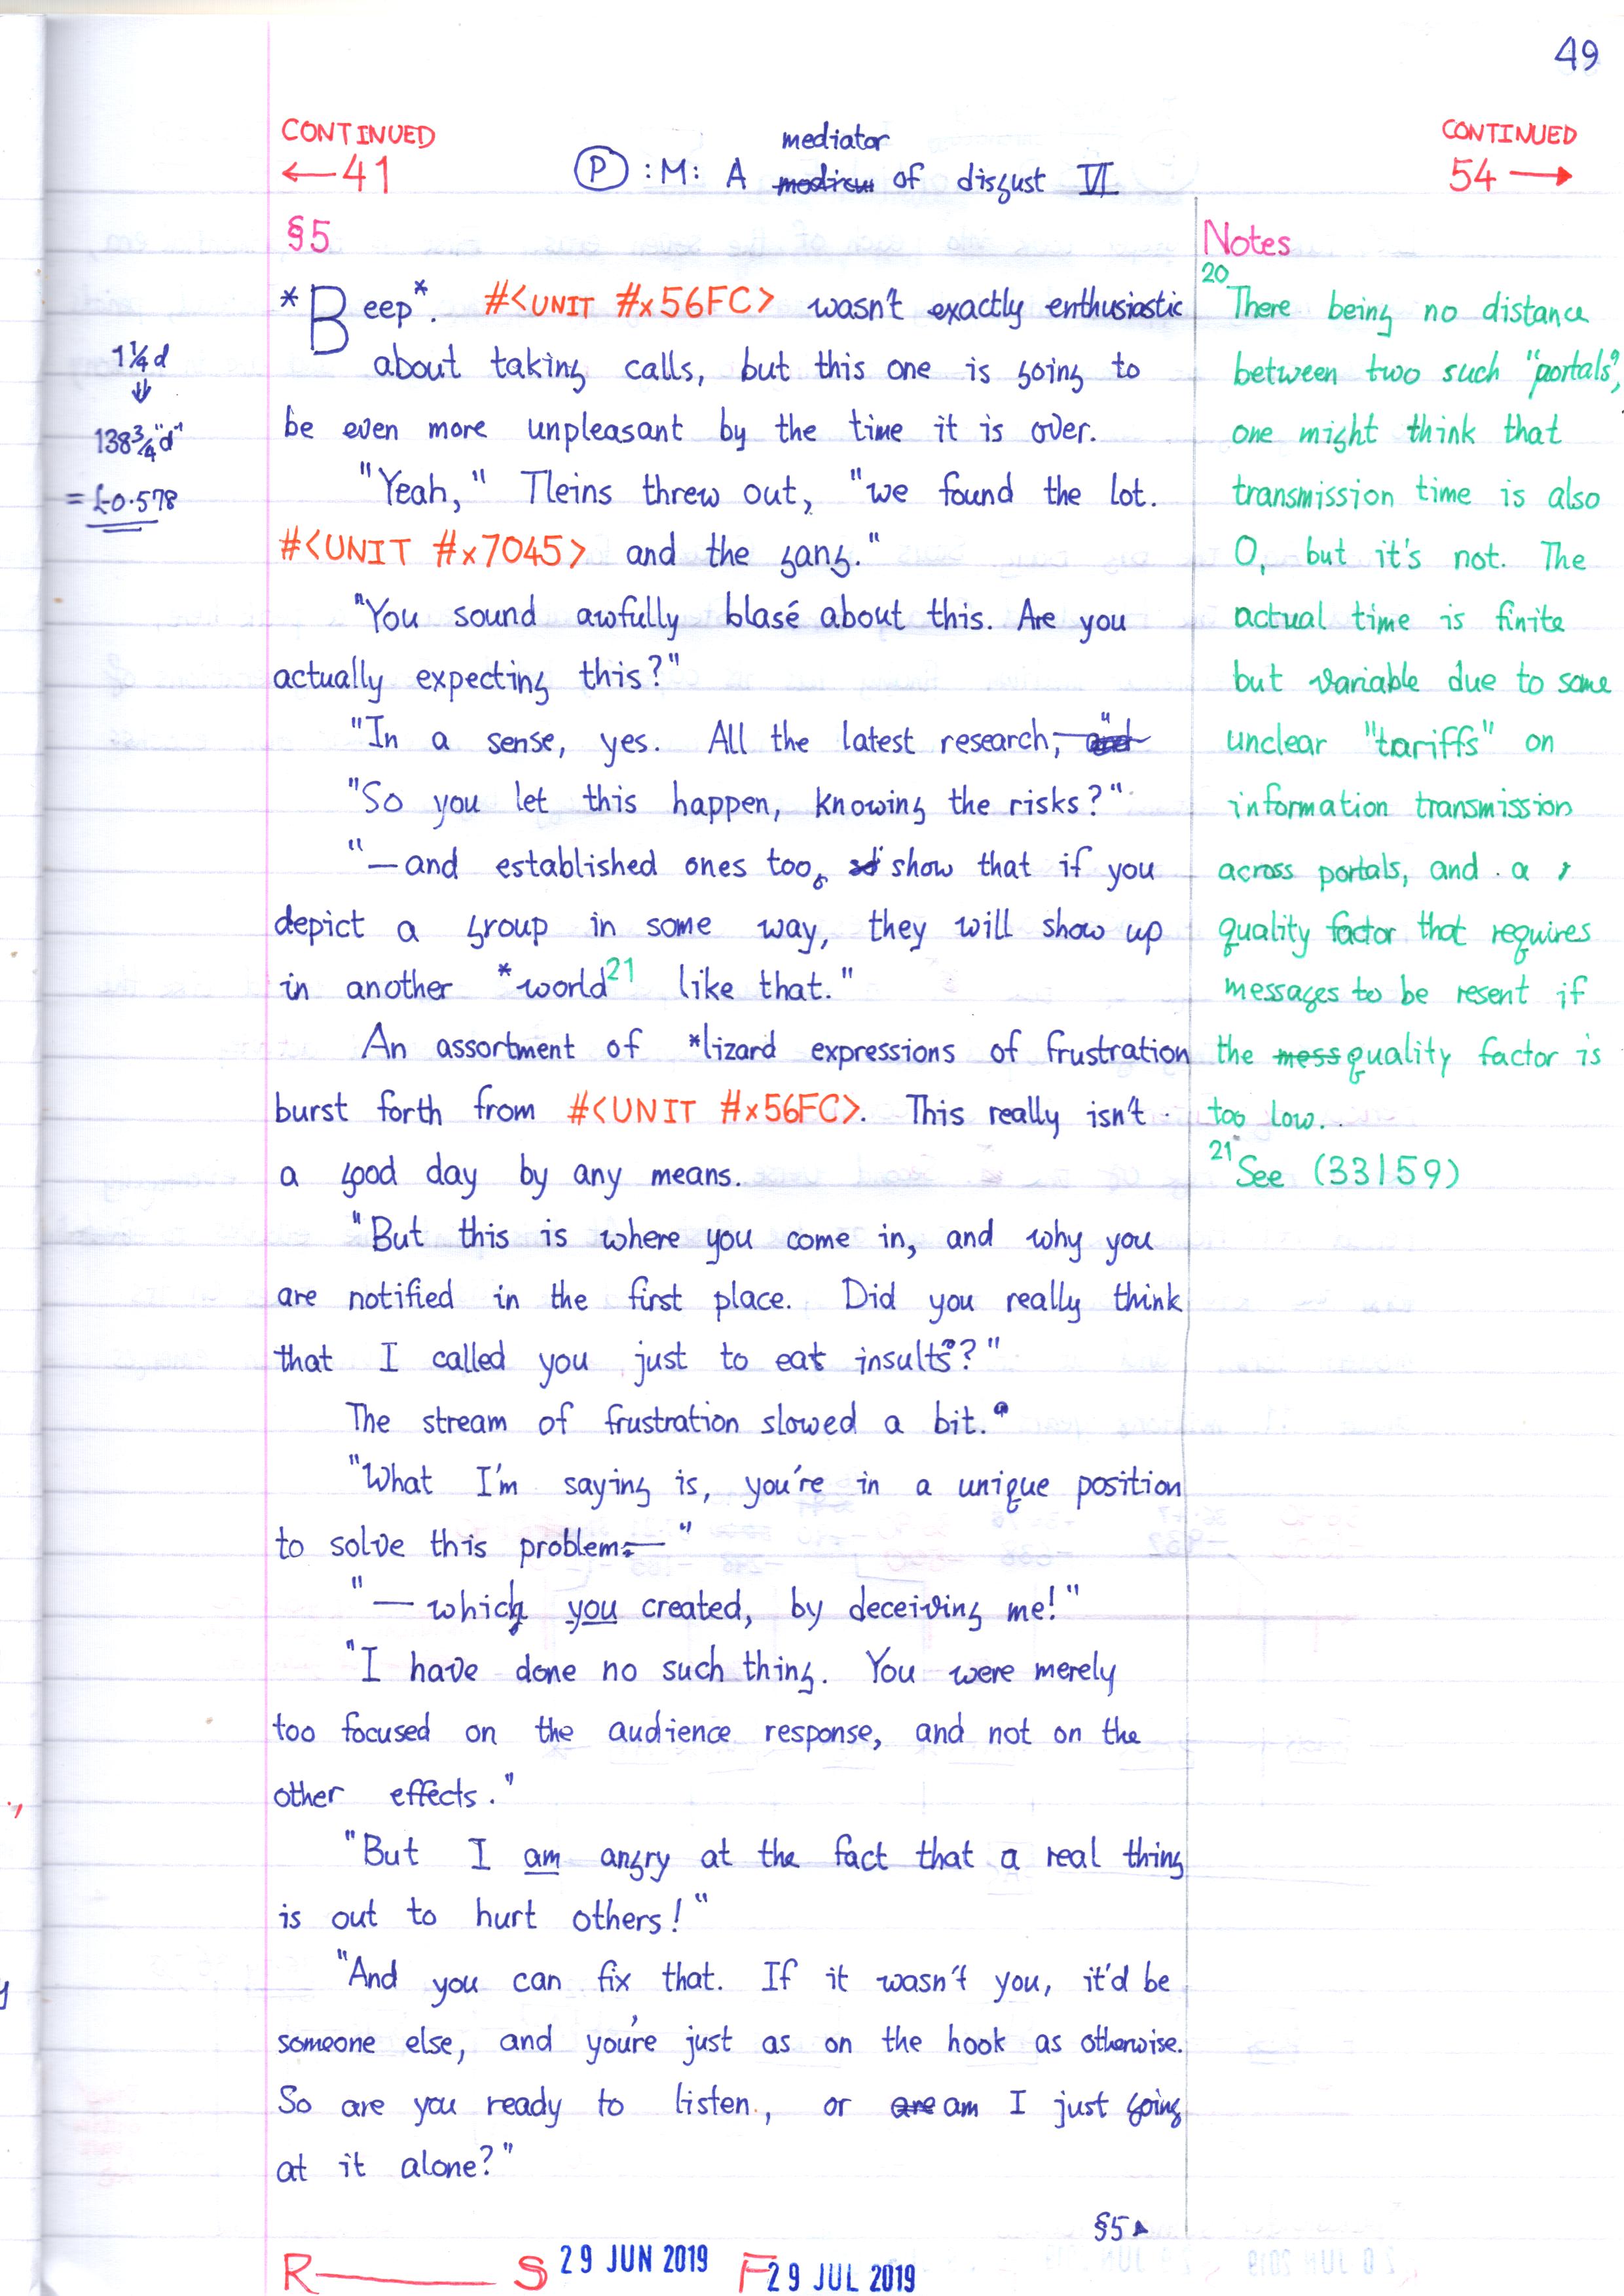 49
CONTINUED
←41
mediator
Ⓟ :M: A of disgust VI
CONTINUED
54 →
§5
*Beep*. #<UNIT #x56FC> wasn't exactly enthusiastic
about taking calls, but this one is going to
be even more unpleasant by the time it is over.
"Yeah," Tleins threw out, "we found the lot.
#<UNIT #x7045> and the gang."
"You sound awfully blasé about this. Are you
actually expecting this?"
"In a sense, yes. All the latest research,—"
"So you let this happen, knowing the risks?"
"—and established ones too, show that if you
depict a group in some way, they will show up
in another *world²¹ like that."
An assortment of *lizard expressions of frustration
burst forth from #<UNIT #x56FC>. This really isn't
a good day by any means.
"But this is where you come in, and why you
are notified in the first place. Did you really think
that I called you just to eat insults?"
The stream of frustration slowed a bit.
"What I'm saying is, you're in a unique position
to solve this problem—"
"—which you created, by deceiving me!"
"I have done no such thing. You were merely
too focused on the audience response, and not on the
other effects."
"But I am angry at the fact that a real thing
is out to hurt others!"
"And you can fix that. If it wasn't you, it'd be
someone else, and you're just as on the hook as otherwise.
So are you ready to listen, or are am I just going
at it alone?"
§5
1¼d
⇓
138¾"d"
= £0.578
Notes
²⁰There being no distance
between two such "portals",
one might think that
transmission time is also
0, but it's not. The
actual time is finite
but variable due to some
unclear "tariffs" on
information transmission
across portals, and a
quality factor that requires
messages to be resent if
the mess quality factor is
too low.
²¹See (33159)
R S 29 JUN 2019 F 29 JUL 2019